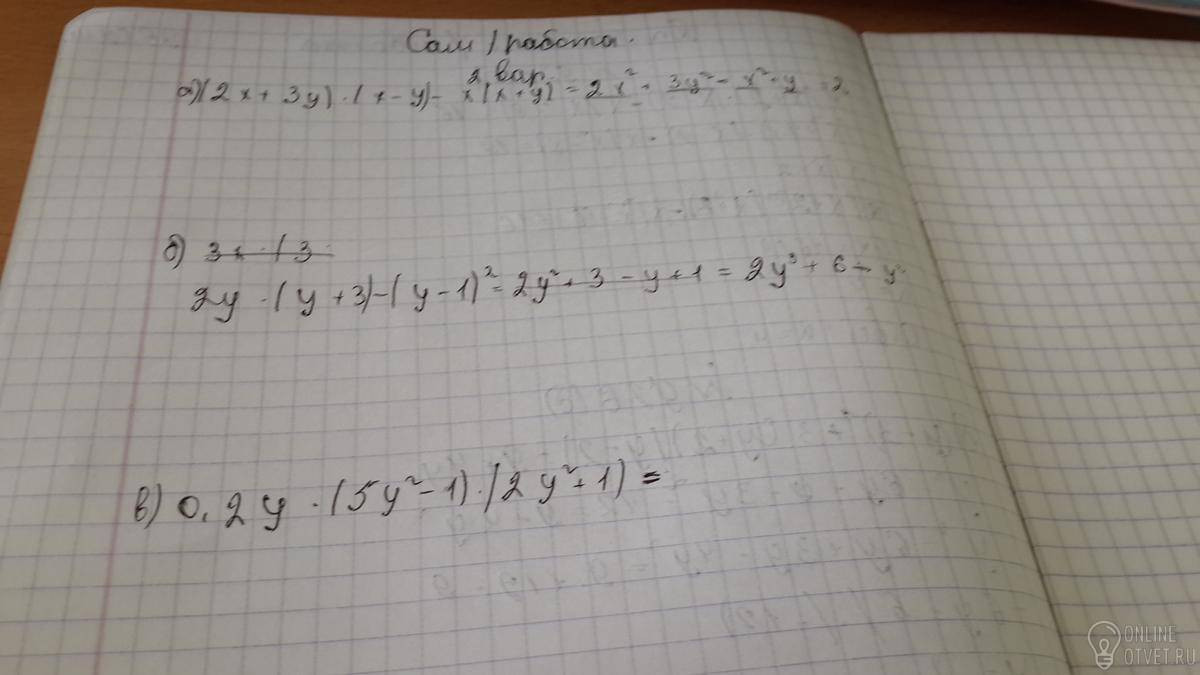 Сам / работа.
2 вар.
а) (2x + 3y) · (x - y) - x (x + y) = 2x² + 3y² - x² + y = 2
б) 3x · (3
2y · (y + 3) - (y - 1)² = 2y² + 3 - y + 1 = 2y³ + 6 - y
в) 0,2y · (5y² - 1) · (2y² + 1) =
ONLINE
OTVET.RU